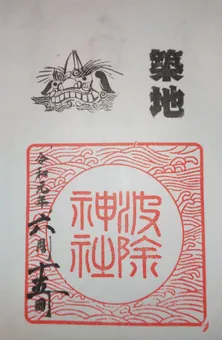 築地
波除
神社
令和元年六月十五日